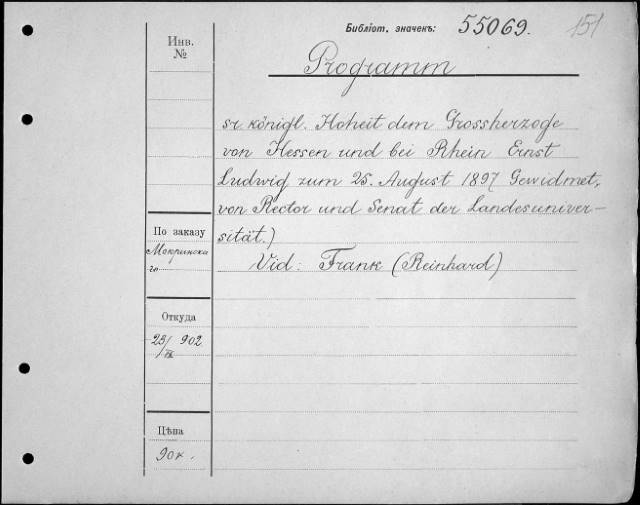 Библіот. значекъ: 55069. 151
Инв.
№
Programm
sr. königl. Hoheit dem Grossherzoge
von Hessen und bei Rhein Ernst
Ludwig zum 25. August 1897 Gewidmet,
von Rector und Senat der Landesuniver-
sität.)
Vid: Frank (Reinhard)
По заказу
Мокринска
го
Откуда
23/IX 902
Цѣна
90к.